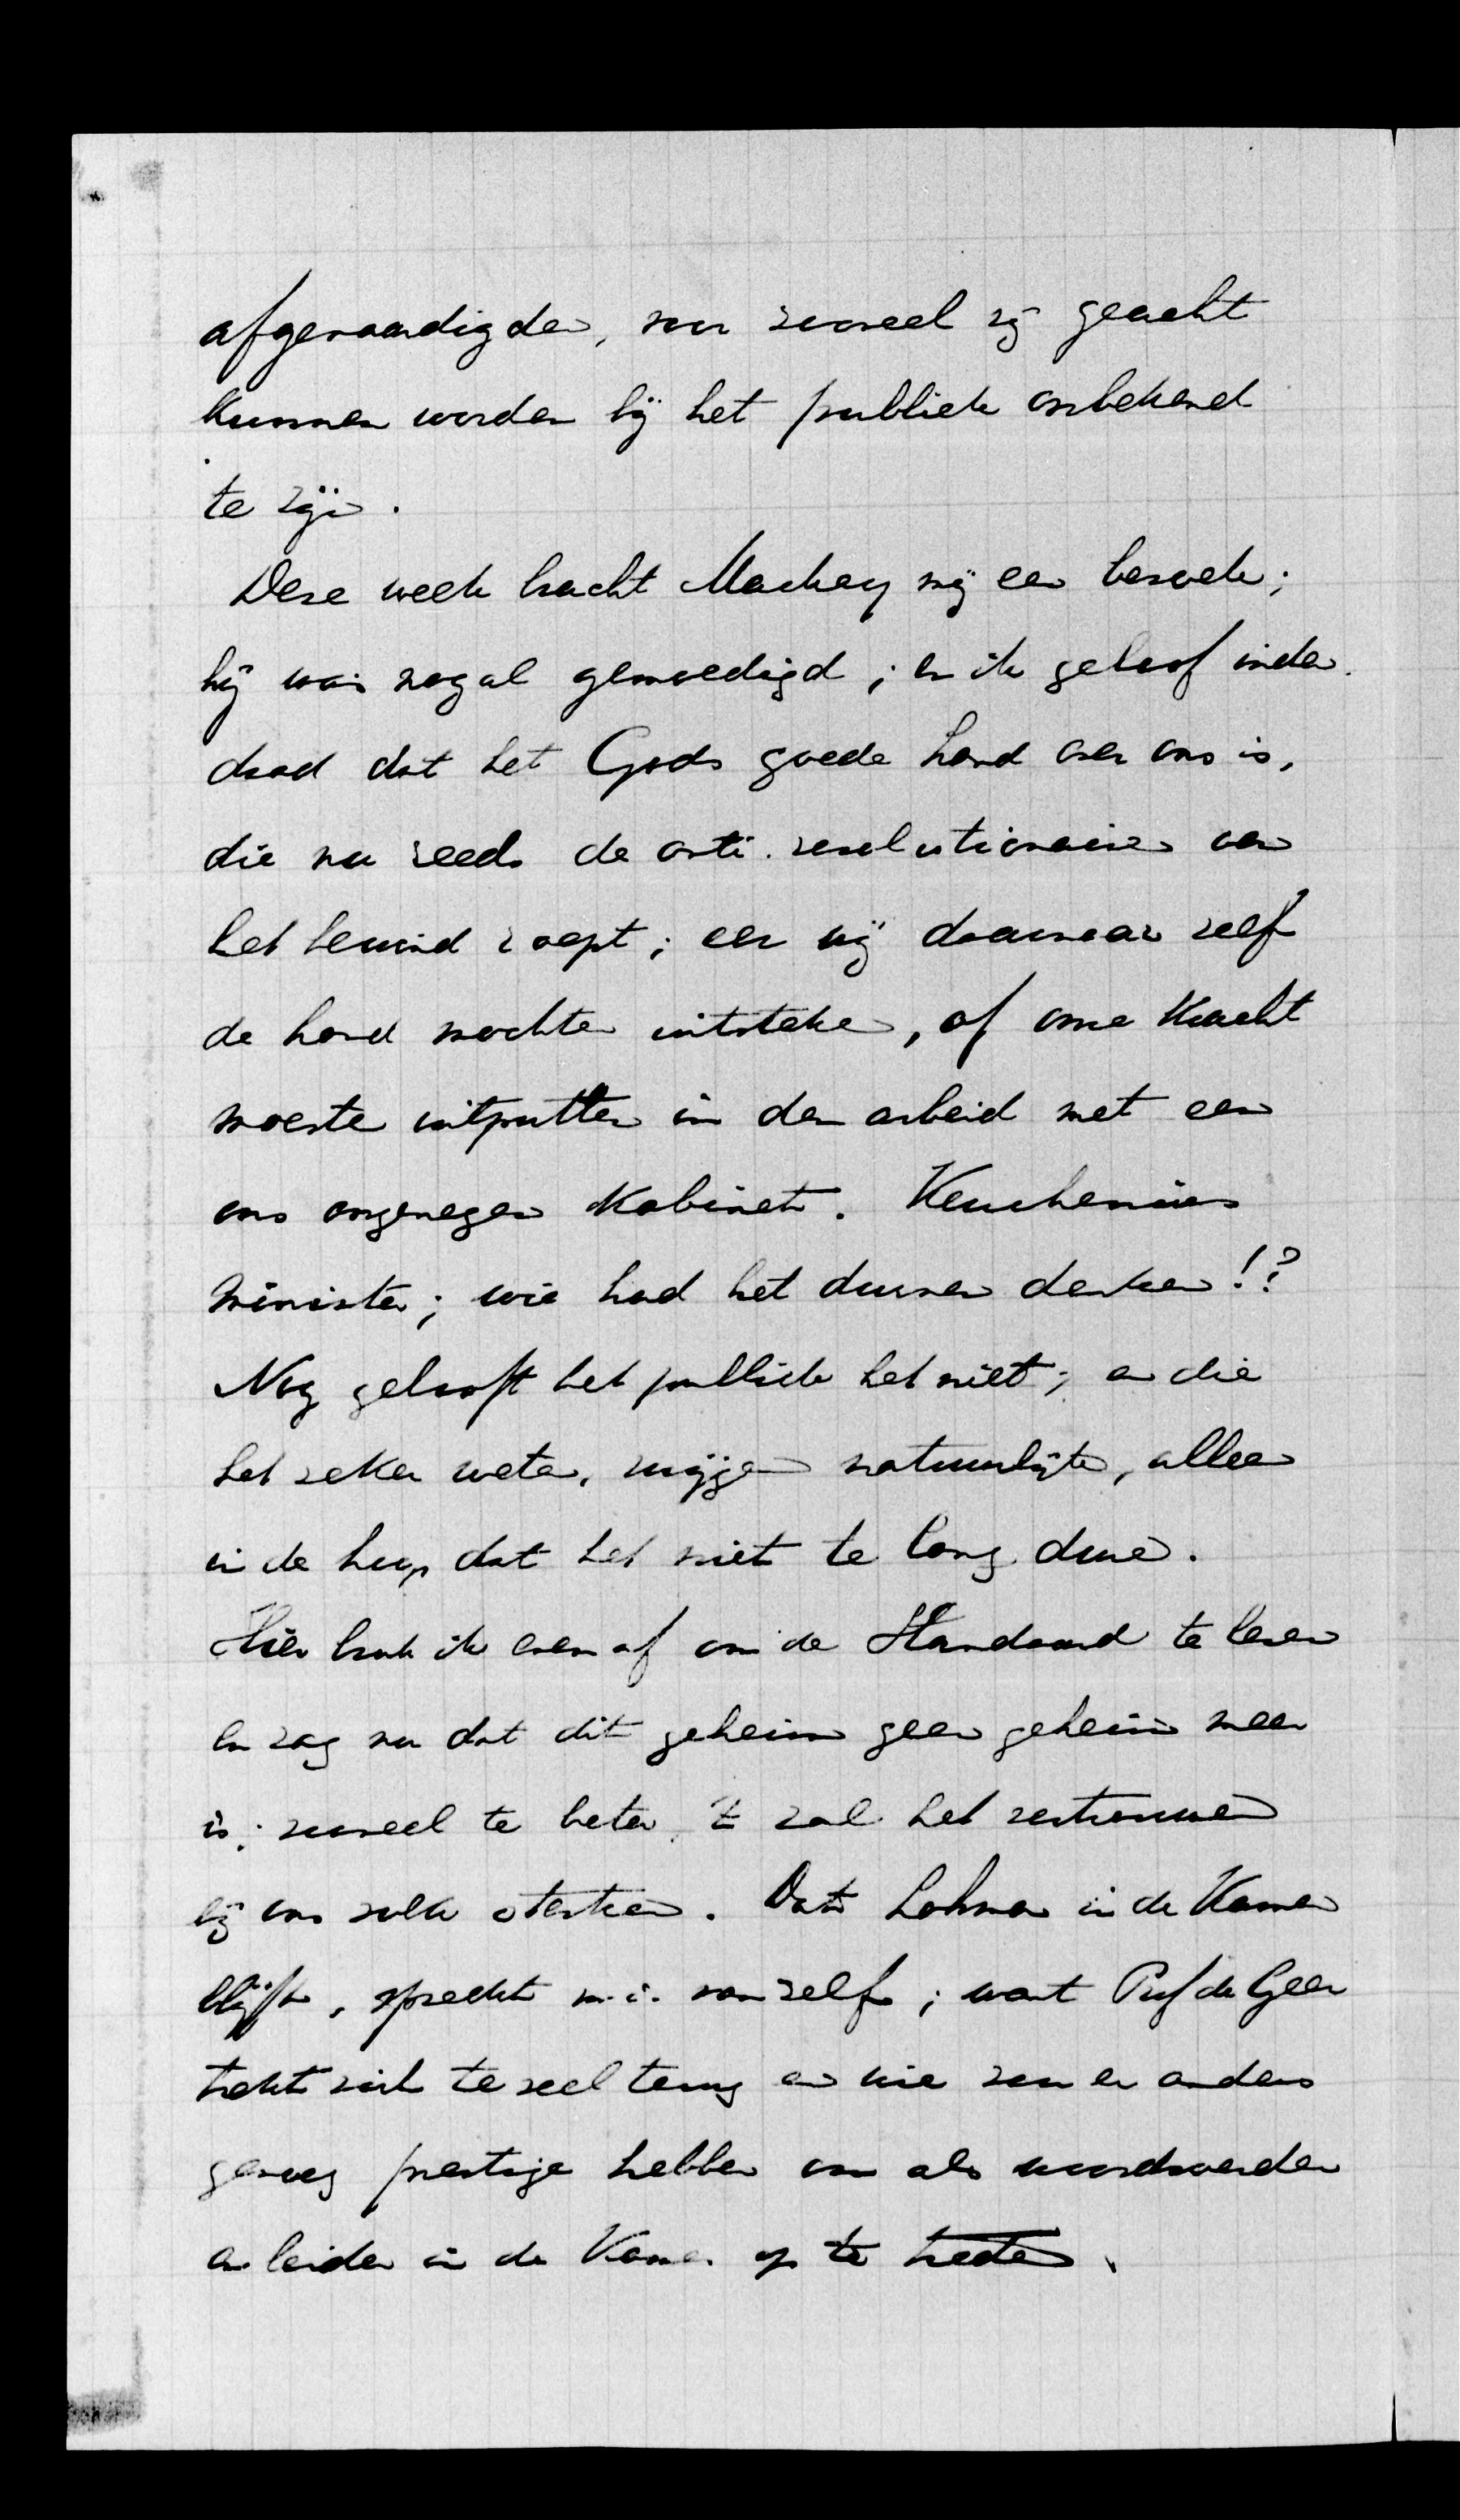 afgevaardigden, voor zooveel zij geacht
kunnen worden bij het publiek onbekend
te zijn.
Deze week bracht Mackay mij een bezoek;
hij was nogal gemoedigd; en ik geloof inder-
daad dat het Gods goede hand over ons is,
die nu reeds de anti-revolutionairen aan
het bewind roept; eer wij daarnaar zelf
de hand mochten uitsteken, of onze kracht
moesten uitputten in den arbeid met een
ons ongenegen Kabinet. Keuchenius
minister; wie had het durven denken!?
Nog gelooft het publiek het niet; en die
het zeker weten, zwijgen natuurlijk, alleen
in de hoop dat het niet te lang dure.
Hier brak ik even af om de Standaard te lezen
en zag nu dat dit geheim geen geheim meer
is; zooveel te beter, 't zal het vertrouwen
bij ons volk sterken. Dat Lohman in de Kamer
blijft, spreekt m.i. van zelf; want Prof de Geer
trekt zich te veel terug en wie zou er anders
genoeg prestige hebben om als woordvoerder
en leider in de Kamer op te treden.